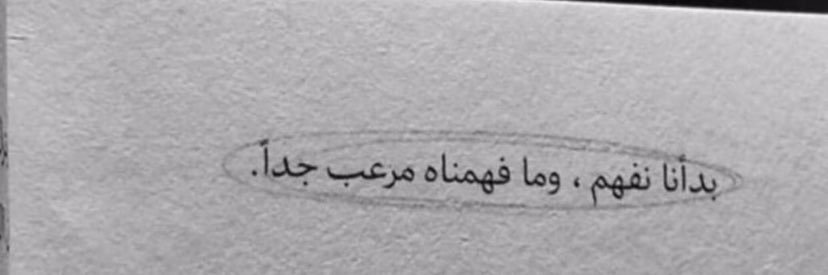 بدأنا نفهم ، وما فهمناه مرعب جداً.